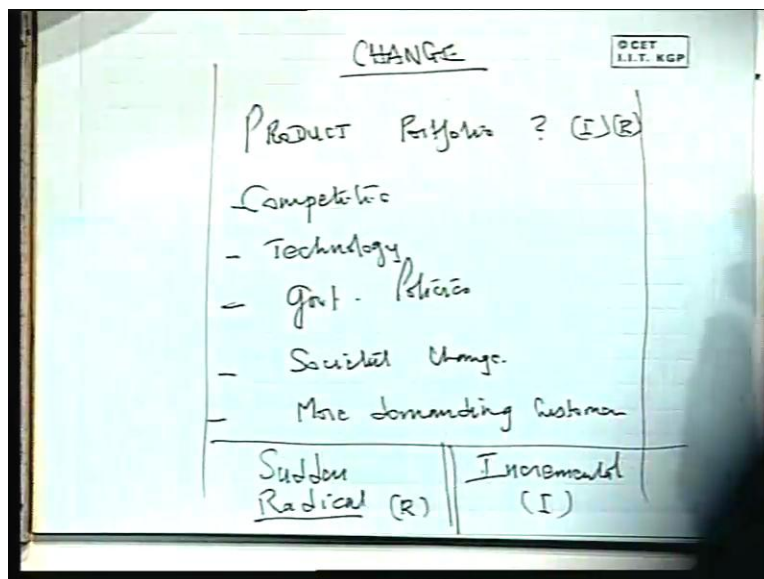 CHANGE
© CET
I.I.T. KGP
PRODUCT Portfolio ? (I)(R)
- Competitio
- Technology
- Govt. Policies
- Societal Change.
- More demanding Customer
Sudden
Radical (R)
Incremental
(I)